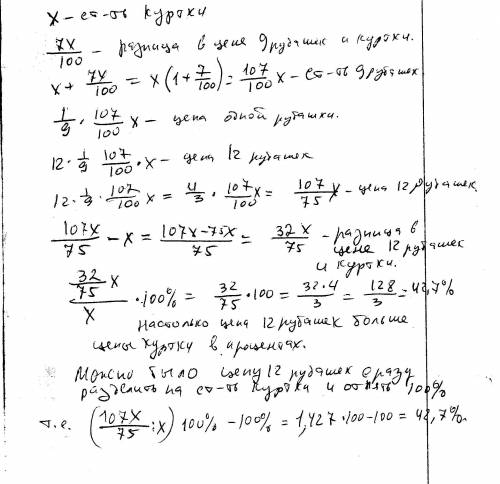 x – ст-ть куртки
7x/100 – разница в цене 9 рубашек и куртки.
x + 7x/100 = x(1 + 7/100) = 107/100 x – ст-ть 9 рубашек
1/9 · 107/100 x – цена одной рубашки.
12 · 1/9 · 107/100 · x – цена 12 рубашек
12 · 1/9 · 107/100 x = 4/3 · 107/100 x = 107/75 x – цена 12 рубашек
107x/75 – x = (107x – 75x)/75 = 32x/75 – разница в
цене 12 рубашек
и куртки.
(32/75 x)/x · 100% = 32/75 · 100 = 32·4/3 = 128/3 = 42,7%
настолько цена 12 рубашек больше
цены куртки в процентах.
Можно было цену 12 рубашек сразу
разделить на ст-ть куртки и отнять 100%
т.е. (107x/75 : x) 100% – 100% = 1,427 · 100 – 100 = 42,7%.